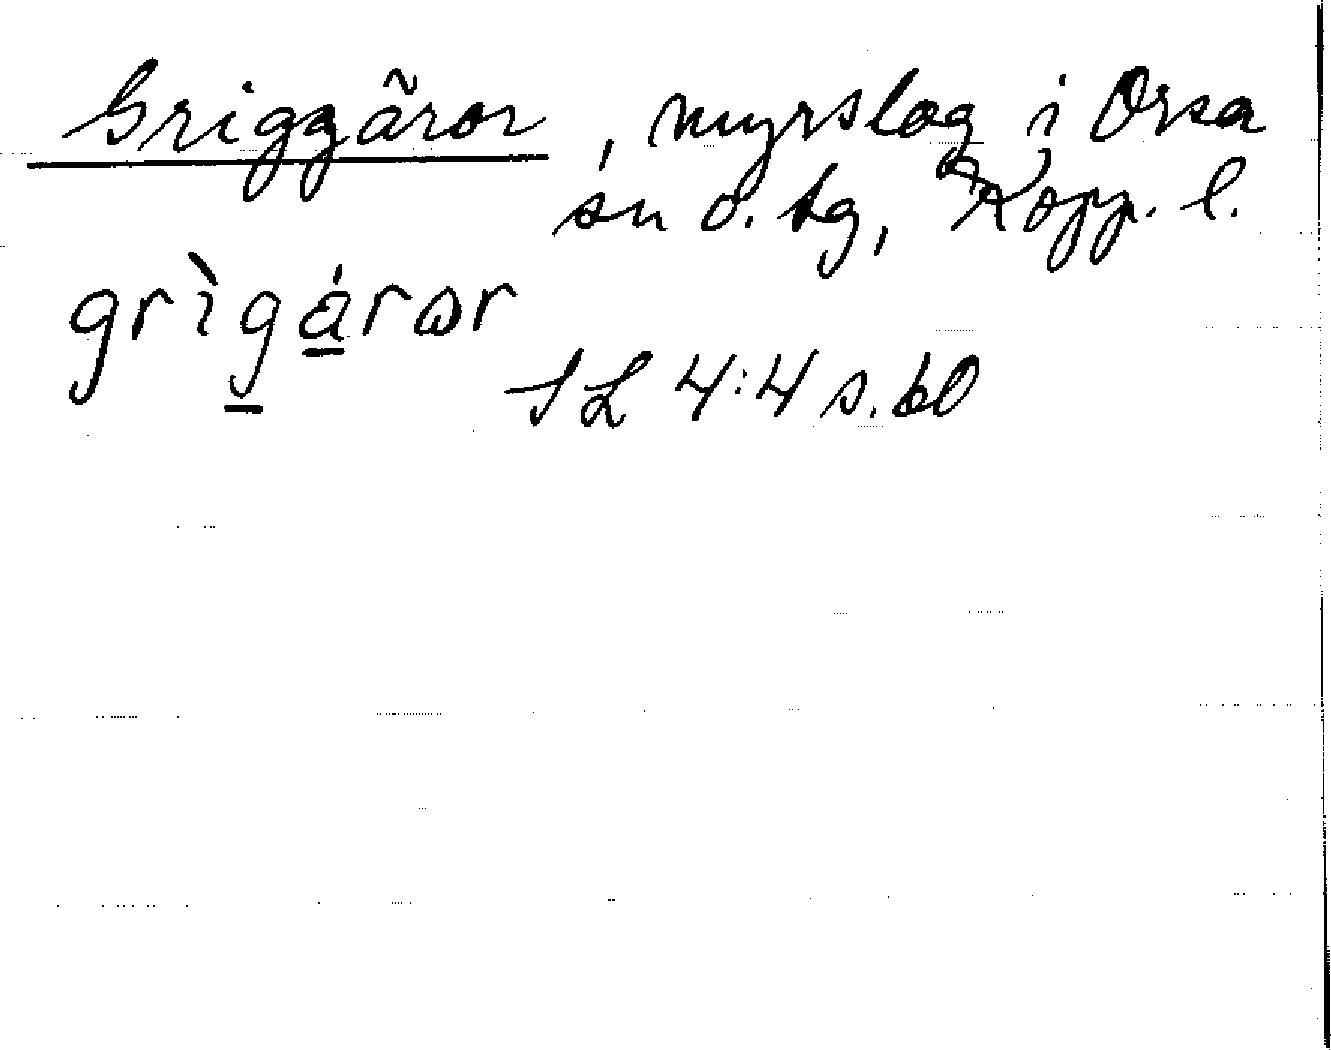 Griggãror, myrslog i Orsa
sn o. tg, Kopp. l.
grìga̲ror
SL 4:4 s. 60